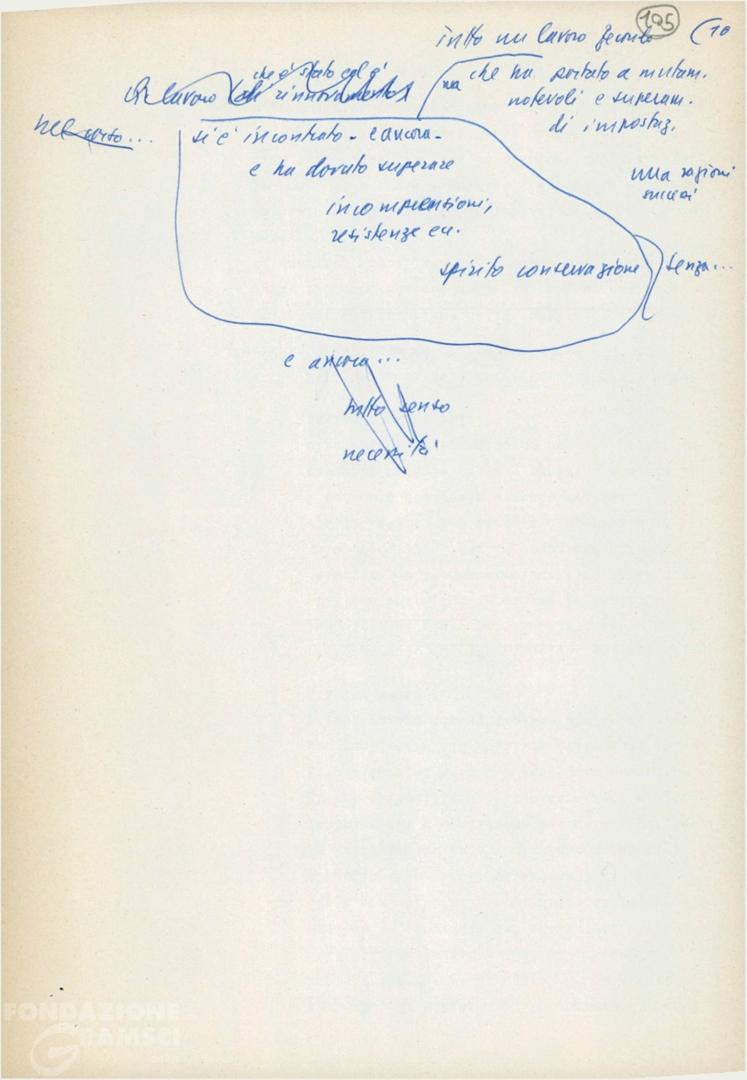 195
(10
tutto un lavoro fecondo
che è stato ed è
Un lavoro di rinnovamento
ma che ha portato a mutam.
notevoli e superam.
di impostaz.
nel corso...
si è incontrato - e ancora -
e ha dovuto superare
sulla ragioni
incomprensioni,
resistenze ecc.
spirito conservazione
senza...
e ancora...
tutto senso
necessità
FONDAZIONE
GRAMSCI